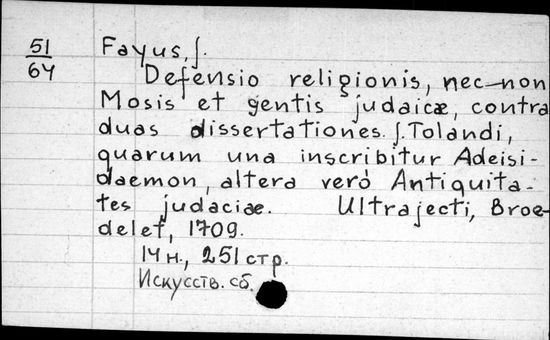 51
64
Fayus, J.
Defensio religionis, nec-non
Mosis et gentis judaicæ, contra
duas dissertationes J. Tolandi,
quarum una inscribitur Adeisi-
daemon, altera verò Antiquita-
tes judaciae. Ultrajecti, Broe-
delet, 1709.
14 н., 251 стр.
Искусств. сб.